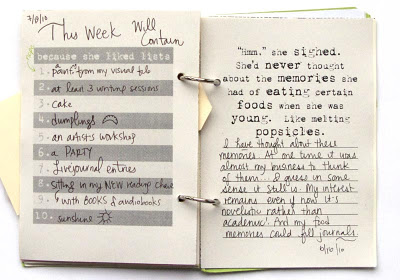 7/8/10
This Week Will
Contain
because she liked lists
1. paint from my visual tele
2. at least 3 writing sessions
3. cake
4. dumplings
5. an artist's workshop
6. a PARTY
7. Livejournal entries
8. Sitting in my NEW reading chair
9. with BOOKS & audiobooks
10. sunshine
"Hmm." she sighed.
She'd never thought
about the memories she
had of eating certain
foods when she was
young. Like melting
popsicles.
I have thought about these
memories. At one time it was
almost my business to think
of them. I guess in some
sense it still is. My interest
remains even if now it's
novelistic rather than
academic. And my food
memories could fill journals.
6/10/10